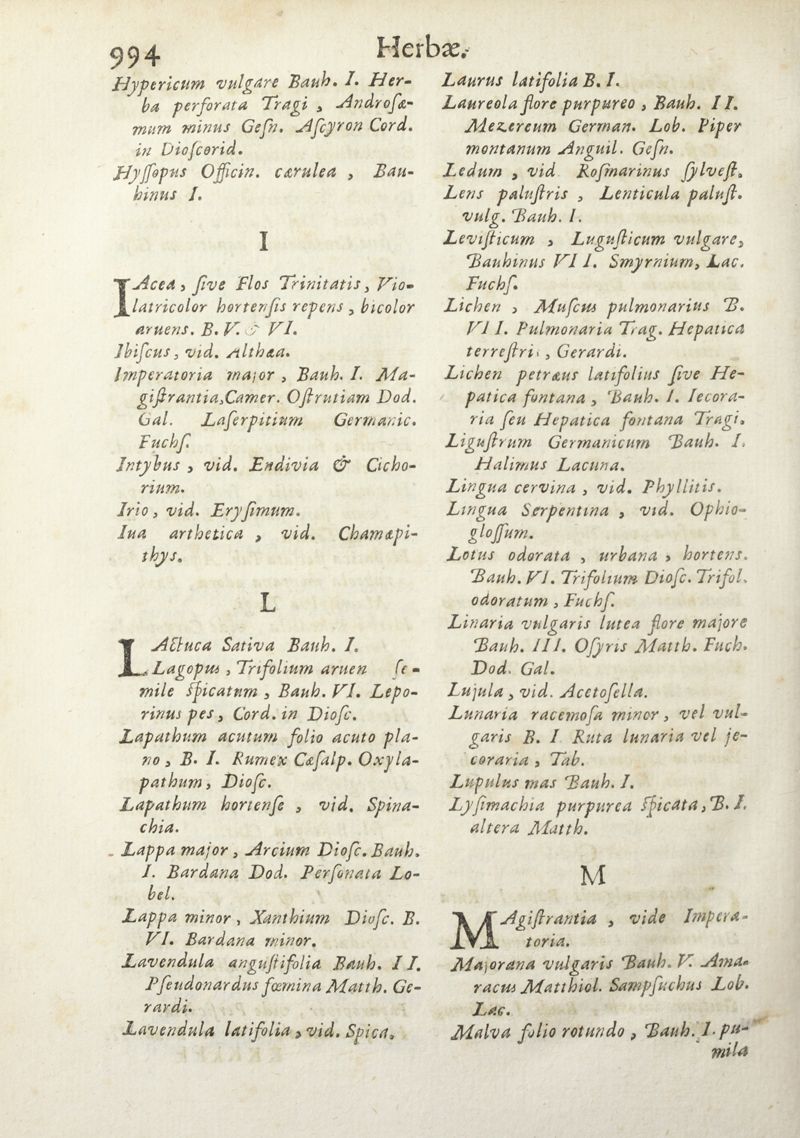 994
Herbæ.
Hypericum vulgare Bauh. I. Her-
ba perforata Tragi , Androsæ-
mum minus Gesn. Ascyron Cord.
in Dioscorid.
Hyssopus Officin. cærulea , Bau-
hinus I.
I
IAcea , sive Flos Trinitatis, Vio-
latricolor hortensis repens , bicolor
aruens. B. V. & VI.
Ibiscus , vid. Althæa.
Imperatoria major , Bauh. I. Ma-
gistrantia,Camer. Ostrutiam Dod.
Gal. Laserpitium Germanic.
Fuchs.
Intybus , vid. Endivia & Cicho-
rium.
Irio , vid. Erysimum.
Iua arthetica , vid. Chamæpi-
thys.
L
LActuca Sativa Bauh. I.
Lagopus , Trifolium aruen se -
mile spicatum , Bauh. VI. Lepo-
rinus pes , Cord. in Diosc.
Lapathum acutum folio acuto pla-
no , B. I. Rumex Cæsalp. Oxyla-
pathum , Diosc.
Lapathum hortense , vid. Spina-
chia.
Lappa major , Arcium Diosc. Bauh.
I. Bardana Dod. Personata Lo-
bel.
Lappa minor , Xanthium Diosc. B.
VI. Bardana minor.
Lavendula angustifolia Bauh. II.
Pseudonardus fœmina Matth. Ge-
rardi.
Lavendula latifolia , vid. Spica.
Laurus latifolia B. I.
Laureola flore purpureo , Bauh. II.
Mezereum German. Lob. Piper
montanum Anguil. Gesn.
Ledum , vid Rosmarinus sylvest.
Lens palustris , Lenticula palust.
vulg. Bauh. I.
Levisticum , Lugusticum vulgare,
Bauhinus VII. Smyrnium, Lac.
Fuchs.
Lichen , Muscus pulmonarius B.
VII. Pulmonaria Trag. Hepatica
terrestris , Gerardi.
Lichen petræus latifolius sive He-
patica fontana , Bauh. I. Iecora-
ria seu Hepatica fontana Tragi.
Ligustrum Germanicum Bauh. I.
Halimus Lacuna.
Lingua cervina , vid. Phyllitis.
Lingua Serpentina , vid. Ophio-
glossum.
Lotus odorata , urbana , hortens.
Bauh. VI. Trifolium Diosc. Trifol.
odoratum , Fuchs.
Linaria vulgaris lutea flore majore
Bauh. III. Osyris Matth. Fuch.
Dod. Gal.
Lujula , vid. Acetosella.
Lunaria racemosa minor , vel vul-
garis B. I Ruta lunaria vel je-
coraria , Tab.
Lupulus mas Bauh. I.
Lysimachia purpurea spicata , B. I.
altera Matth.
M
MAgistrantia , vide Impera-
toria.
Majorana vulgaris Bauh. V. Ama-
racus Matthiol. Sampsuchus Lob.
Lac.
Malva folio rotundo , Bauh. I. pu-
mila